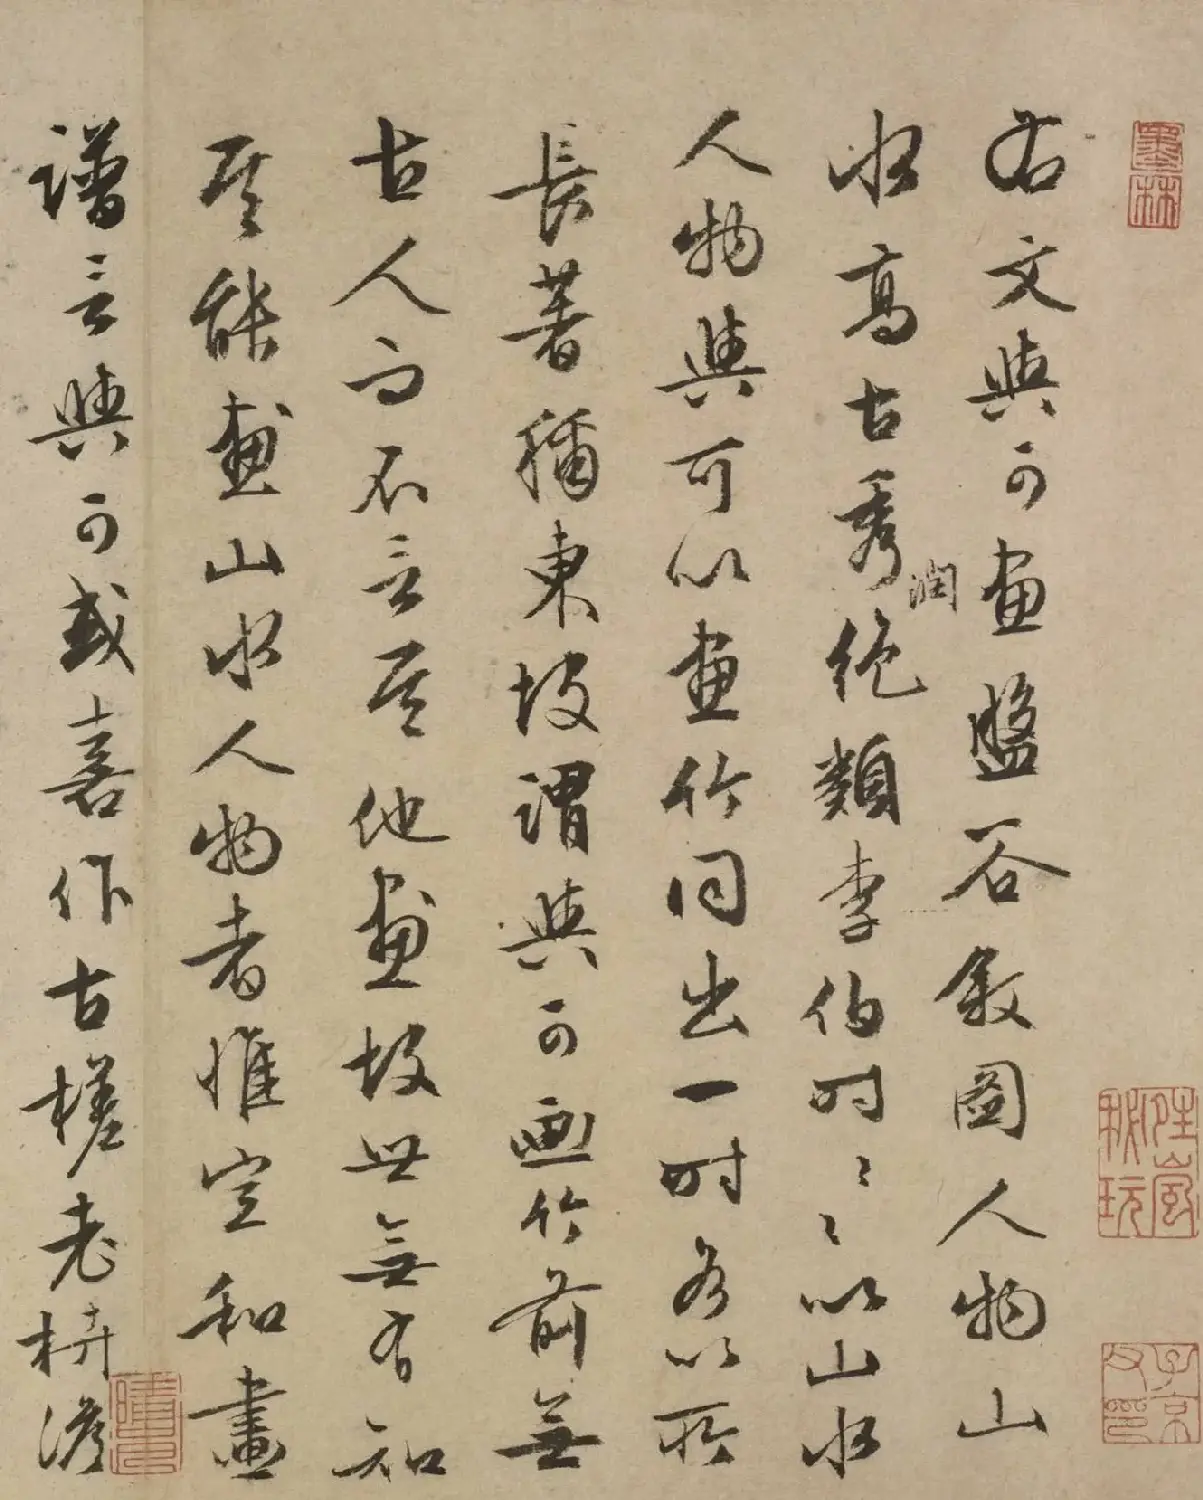 右文與可畫盤谷敘圖人物山
水高古秀潤絕類李伯時〻〻以山水
人物與可以畫竹同出一時各以所
長著稱東坡謂與可畫竹前無
古人而不言其他畫故世無有知
其能畫山水人物者惟宣和畫
譜言與可或喜作古槎老枿淡
墨林
子京父印